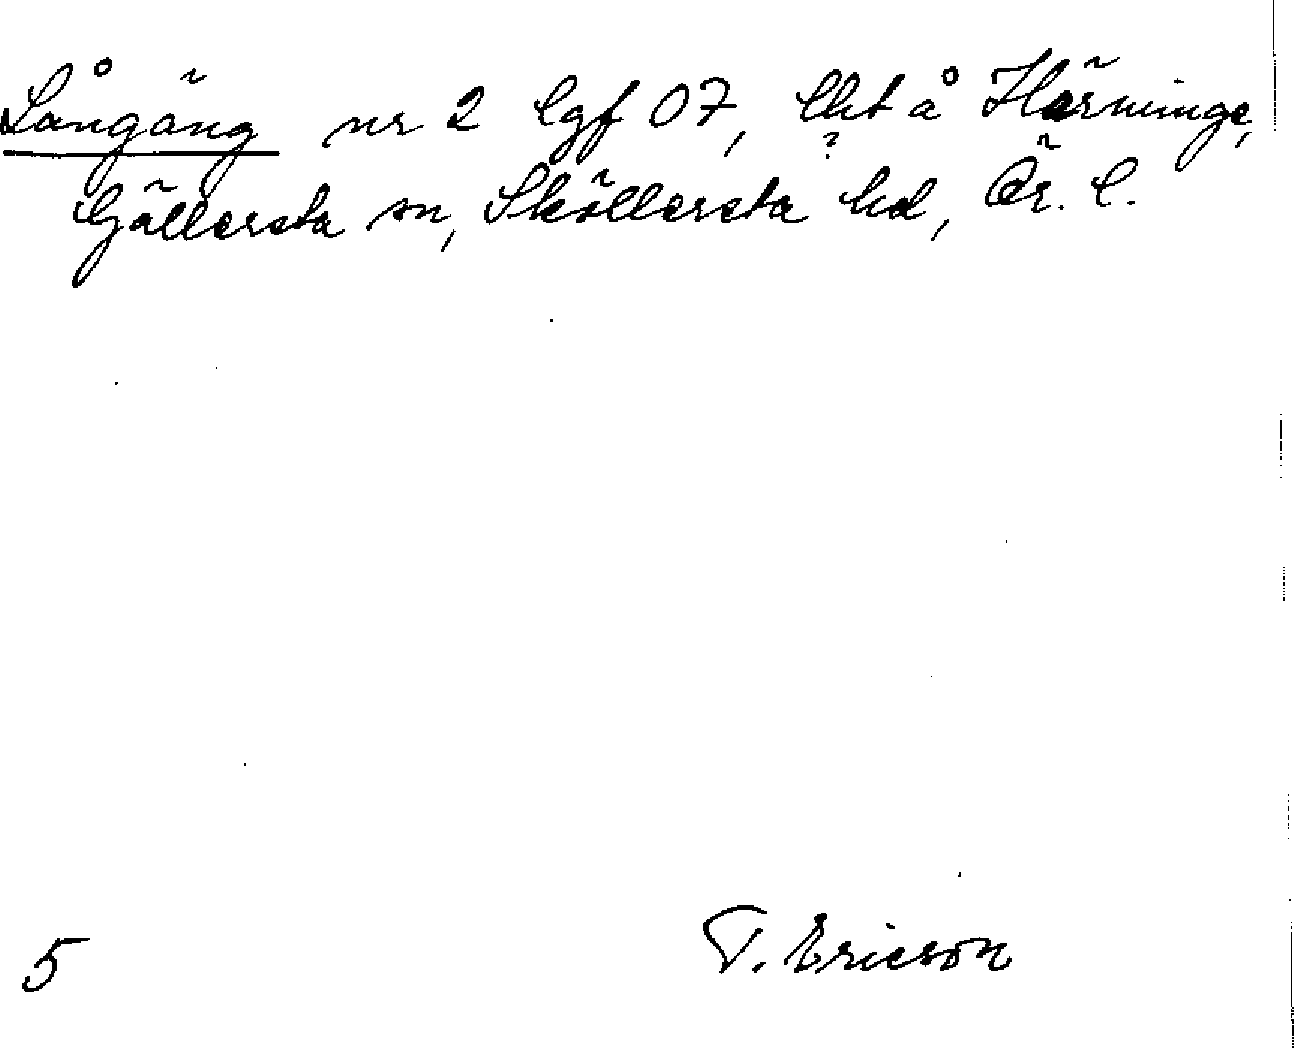 Långäng nr 2 lgf 07, lht å Härninge,
Gällersta sn, Sköllersta hd, Ör. l.
?
5
T. Ericson